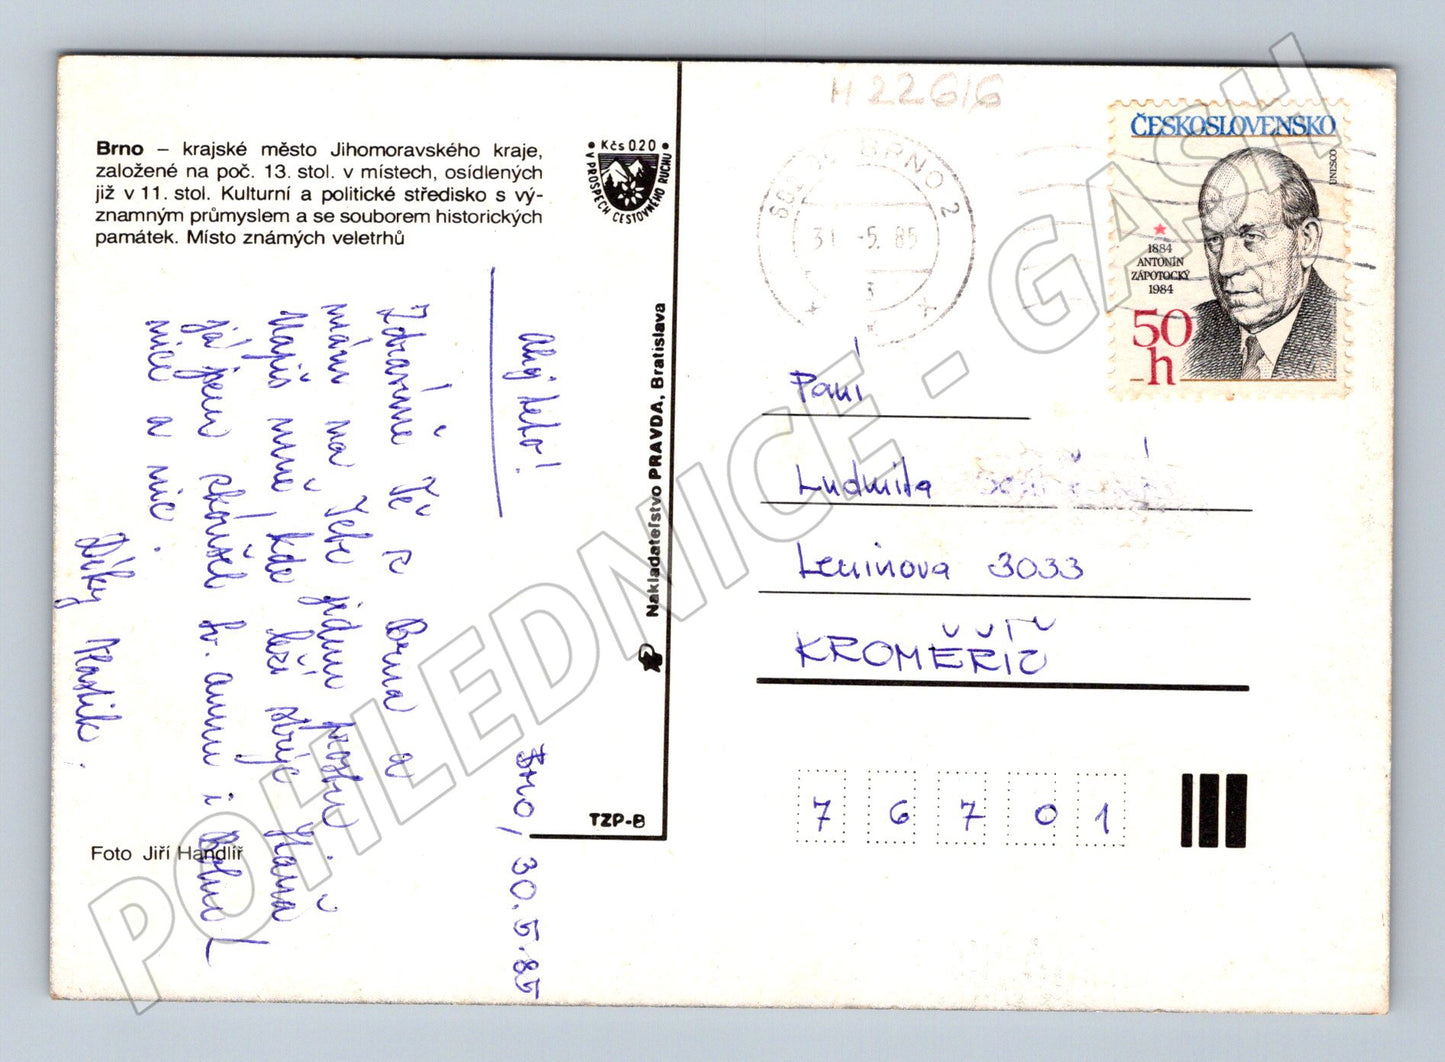 Brno – krajské město Jihomoravského kraje,
založené na poč. 13. stol. v místech, osídlených
již v 11. stol. Kulturní a politické středisko s vý-
znamným průmyslem a se souborem historických
památek. Místo známých veletrhů
• Kčs 0.20 •
V PROSPĚCH CESTOVNÉHO RUCHU
Brno, 30. 5. 85
Ahoj teto!
Zdravíme Tě z Brna a
mám na Tebe jednu prosbu.
Napiš mně, kde leží strýc
já jsem zkoušel sv. annu i
nice a nic.
Díky Vlastík.
Foto Jiří Handlíř
Nakladateľstvo PRAVDA, Bratislava
TZP-B
H 22616
BRNO 2
31. -5. 85
3
ČESKOSLOVENSKO
UNESCO
1884
ANTONÍN
ZÁPOTOCKÝ
1984
50
h
Paní
Ludmila
Leninova 3033
KROMĚŘÍŽ
7 6 7 0 1
POHLEDNICE - GASH